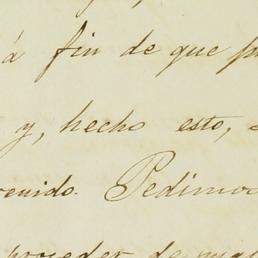 á fin de que
y, hecho esto,
Pedimos
proceder de